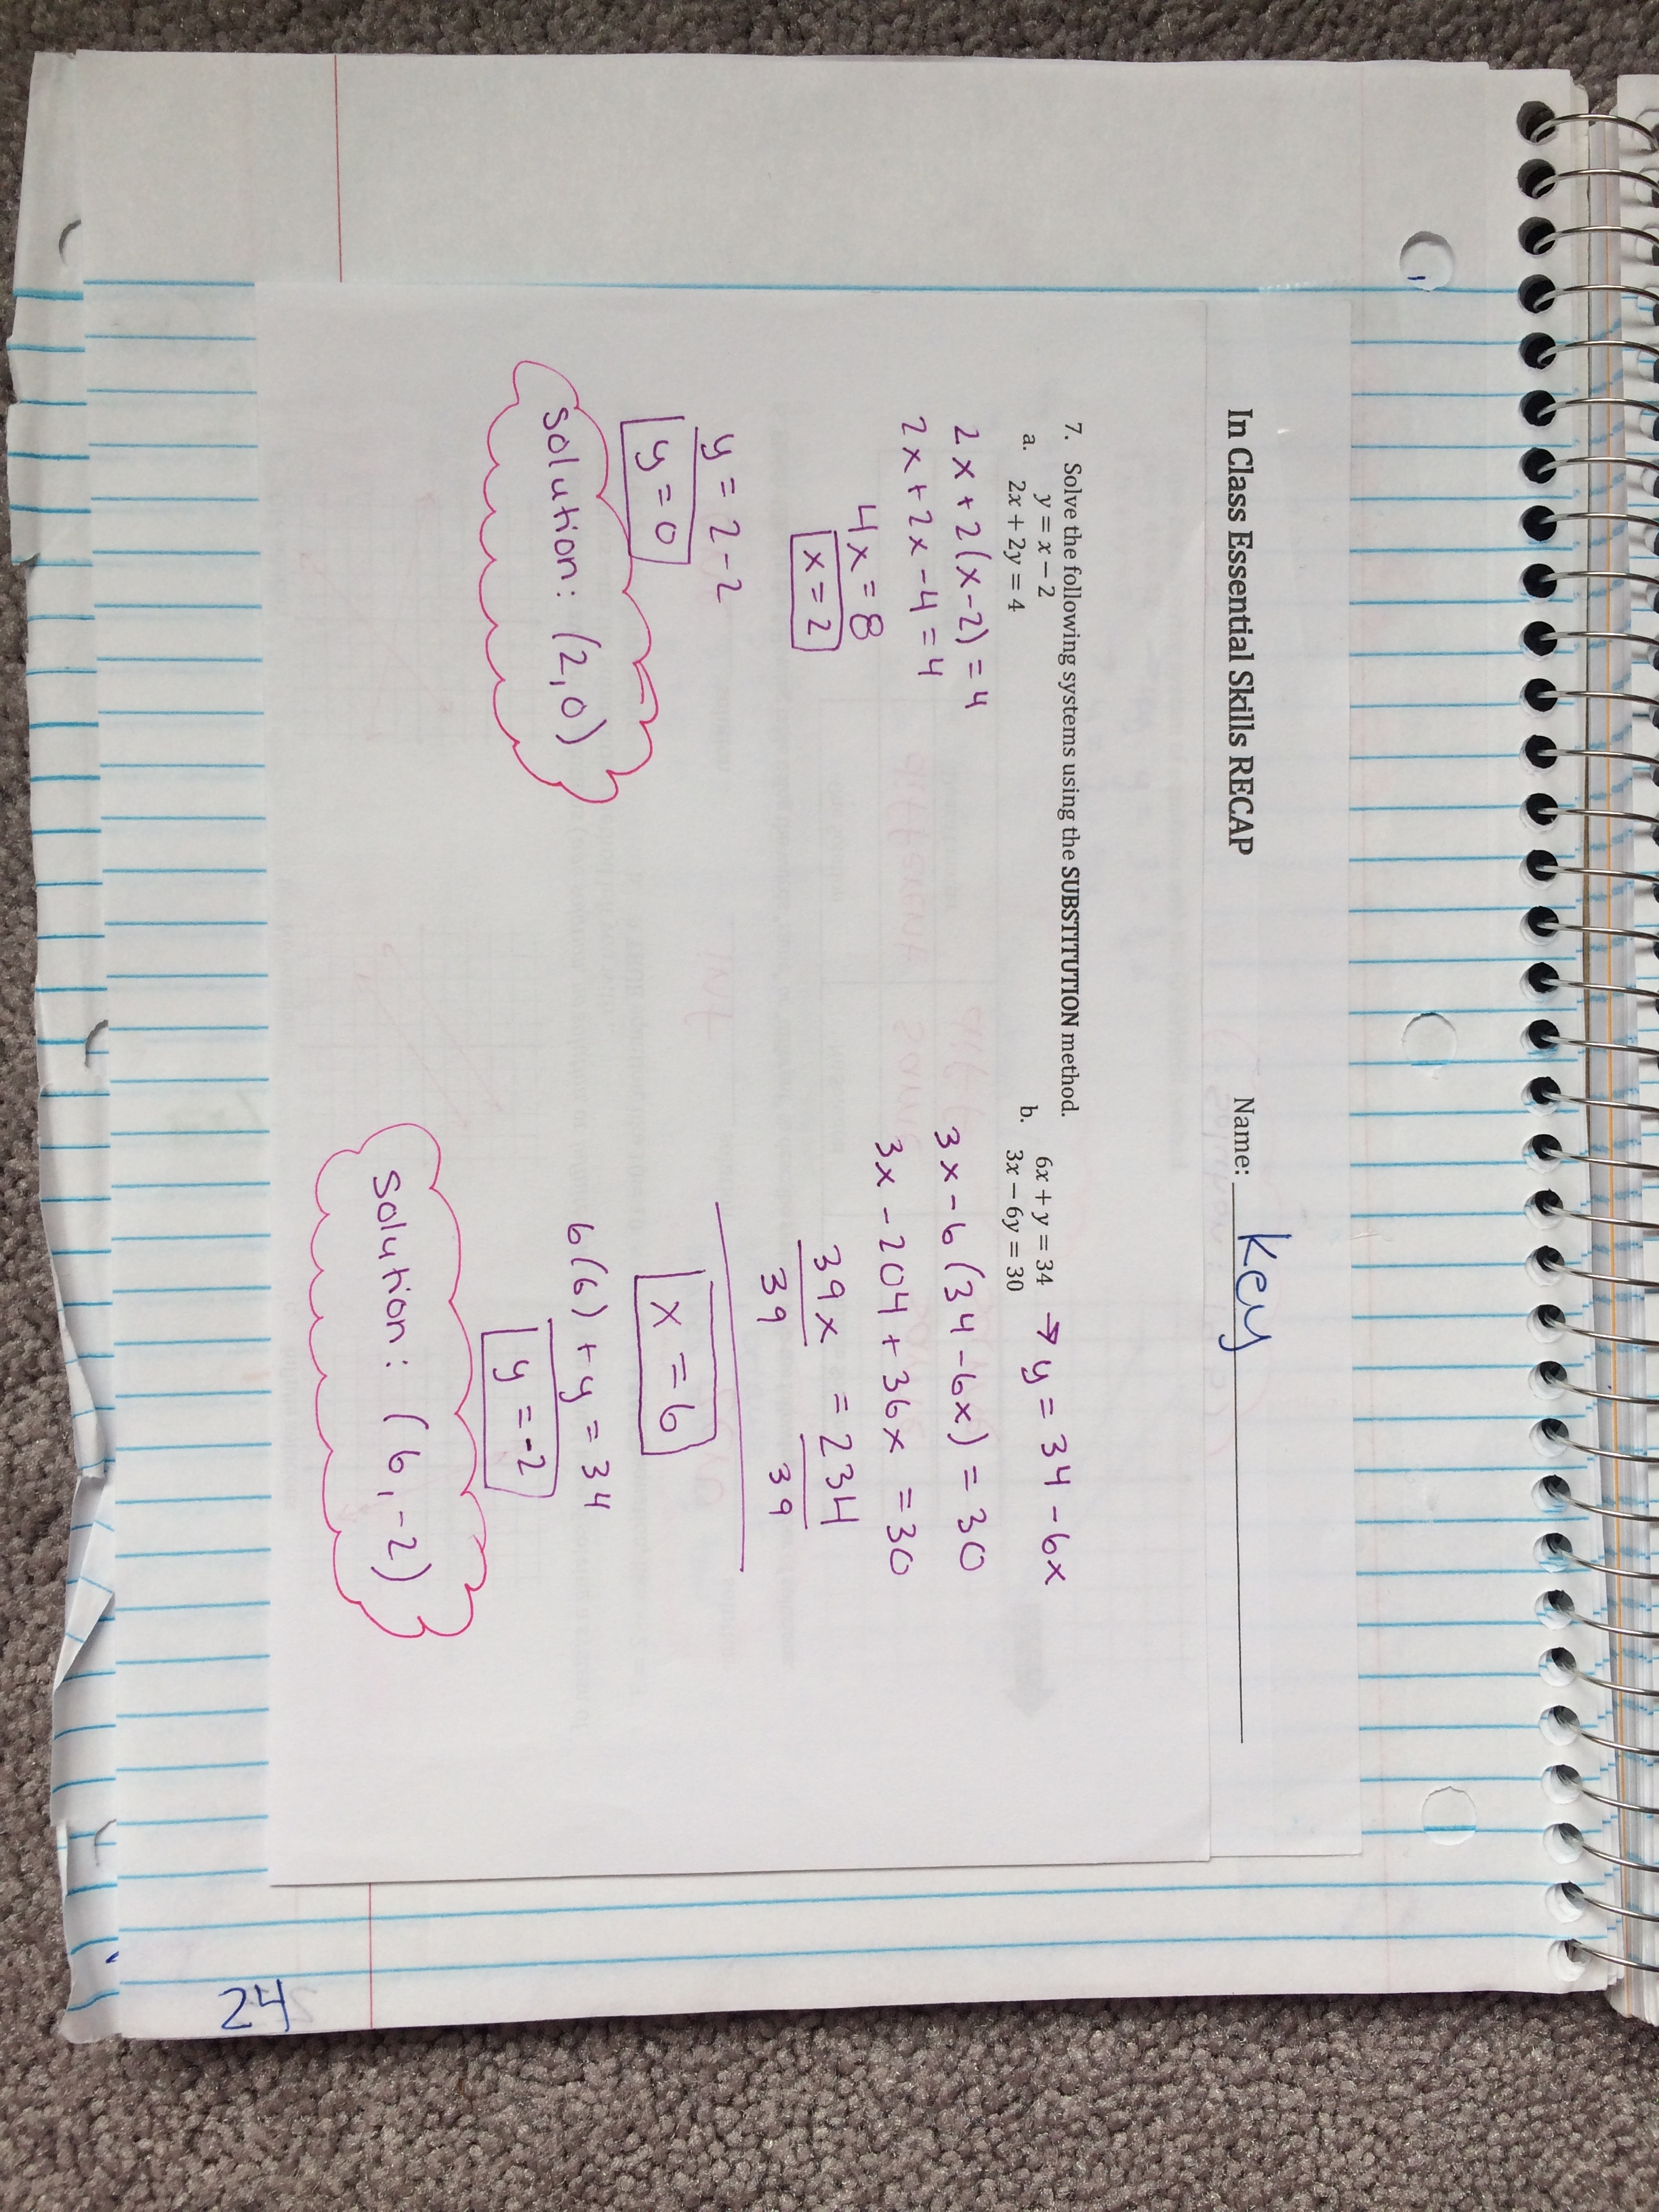 In Class Essential Skills RECAP Name: Key
7. Solve the following systems using the SUBSTITUTION method.
a. y = x − 2
2x + 2y = 4
2x + 2(x-2) = 4
2x + 2x - 4 = 4
4x = 8
x = 2
y = 2 - 2
y = 0
Solution: (2,0)
b. 6x + y = 34 → y = 34 - 6x
3x − 6y = 30
3x - 6(34 - 6x) = 30
3x - 204 + 36x = 30
39x = 234
39 39
x = 6
6(6) + y = 34
y = -2
Solution: (6, -2)
24